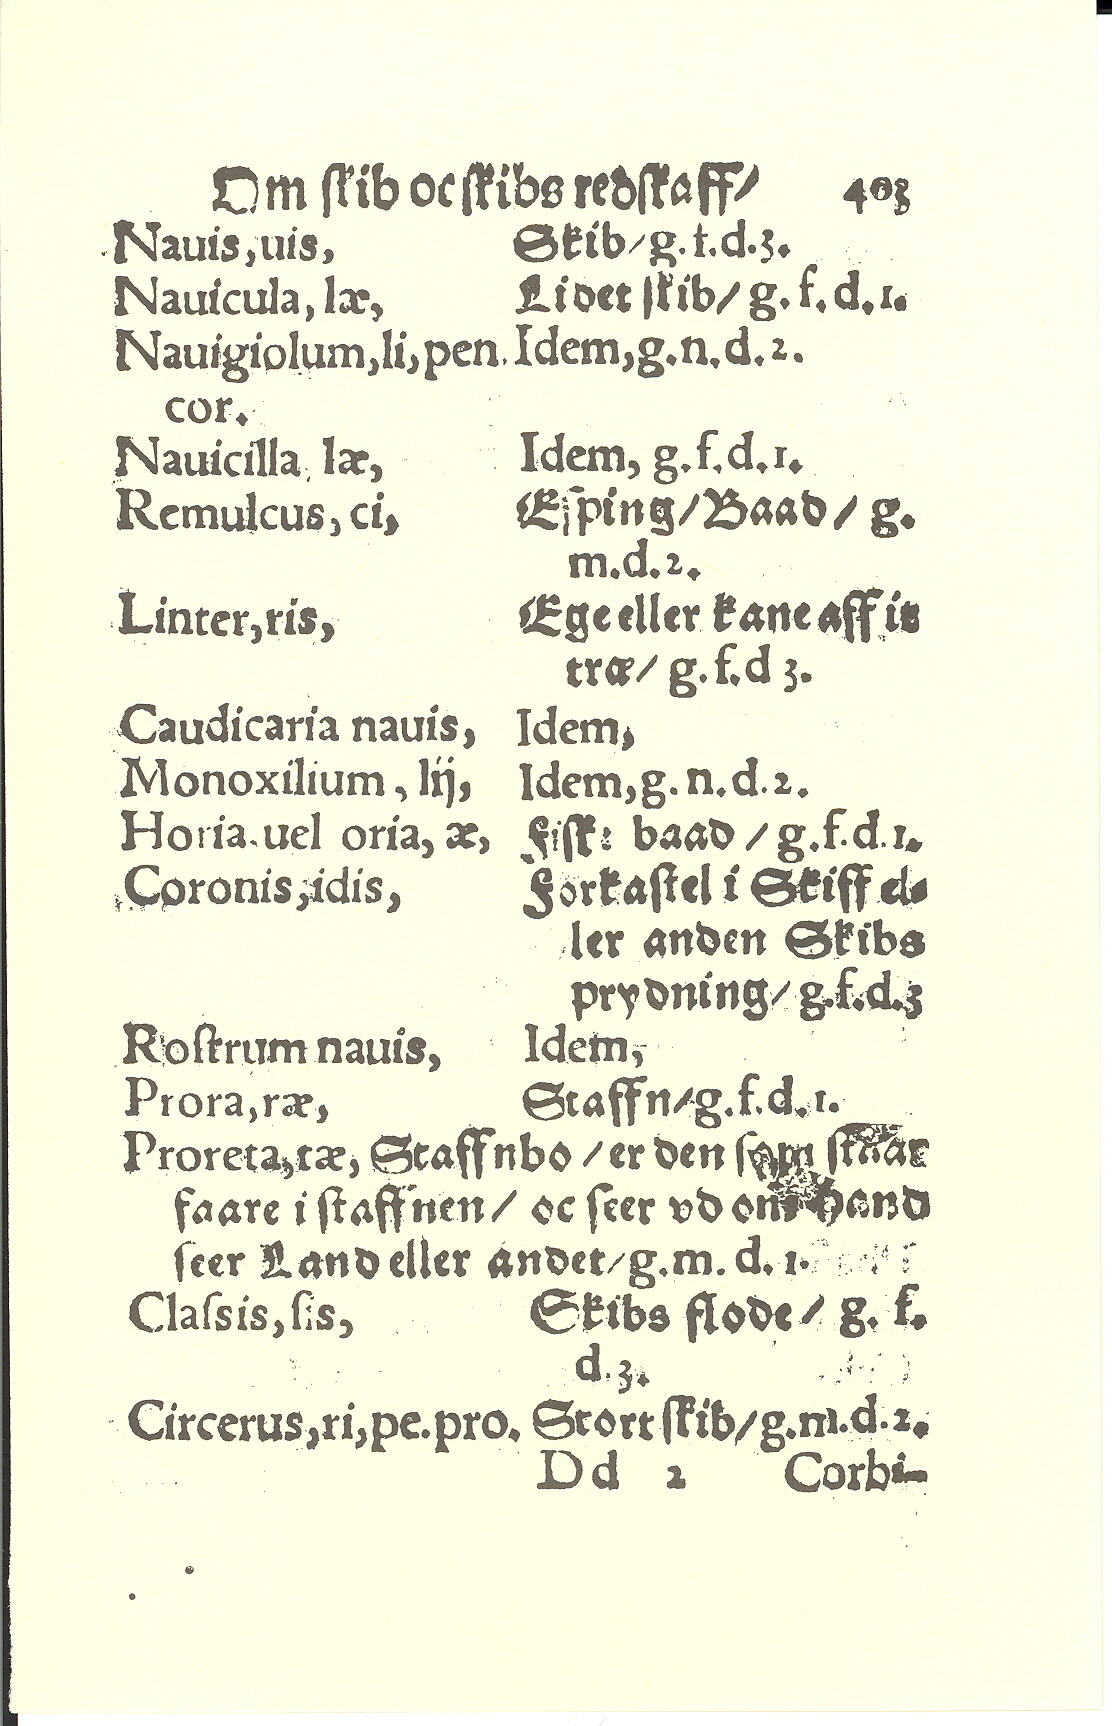 Om ſkib oc ſkibs redſkaff/ 403
Nauis, uis, Skib/ g. f. d. 3.
Nauicula, læ, Lidet ſkib/ g. f. d. 1.
Nauigiolum, li, pen. Idem, g. n. d. 2.
cor.
Nauicilla, læ, Idem, g. f. d. 1.
Remulcus, ci, Eſping/ Baad/ g.
m. d. 2.
Linter, ris, Ege eller kane aff it
træ/ g. f. d 3.
Caudicaria nauis, Idem,
Monoxilium, lij, Idem, g. n. d. 2.
Horia uel oria, æ, Fiſke baad/ g. f. d. 1.
Coronis, idis, Forkaſtel i Skiff el-
ler anden Skibs
prydning/ g. f. d. 3
Roſtrum nauis, Idem,
Prora, ræ, Staffn/ g. f. d. 1.
Proreta, tæ, Staffnbo/ er den ſom ſtaar
faare i ſtaffnen/ oc ſeer vd om hand
ſeer Land eller andet/ g. m. d. 1.
Claſsis, ſis, Skibs flode/ g. f.
d. 3.
Circerus, ri, pe. pro. Stort ſkib/ g. m. d. 2.
Dd 2 Corbi-